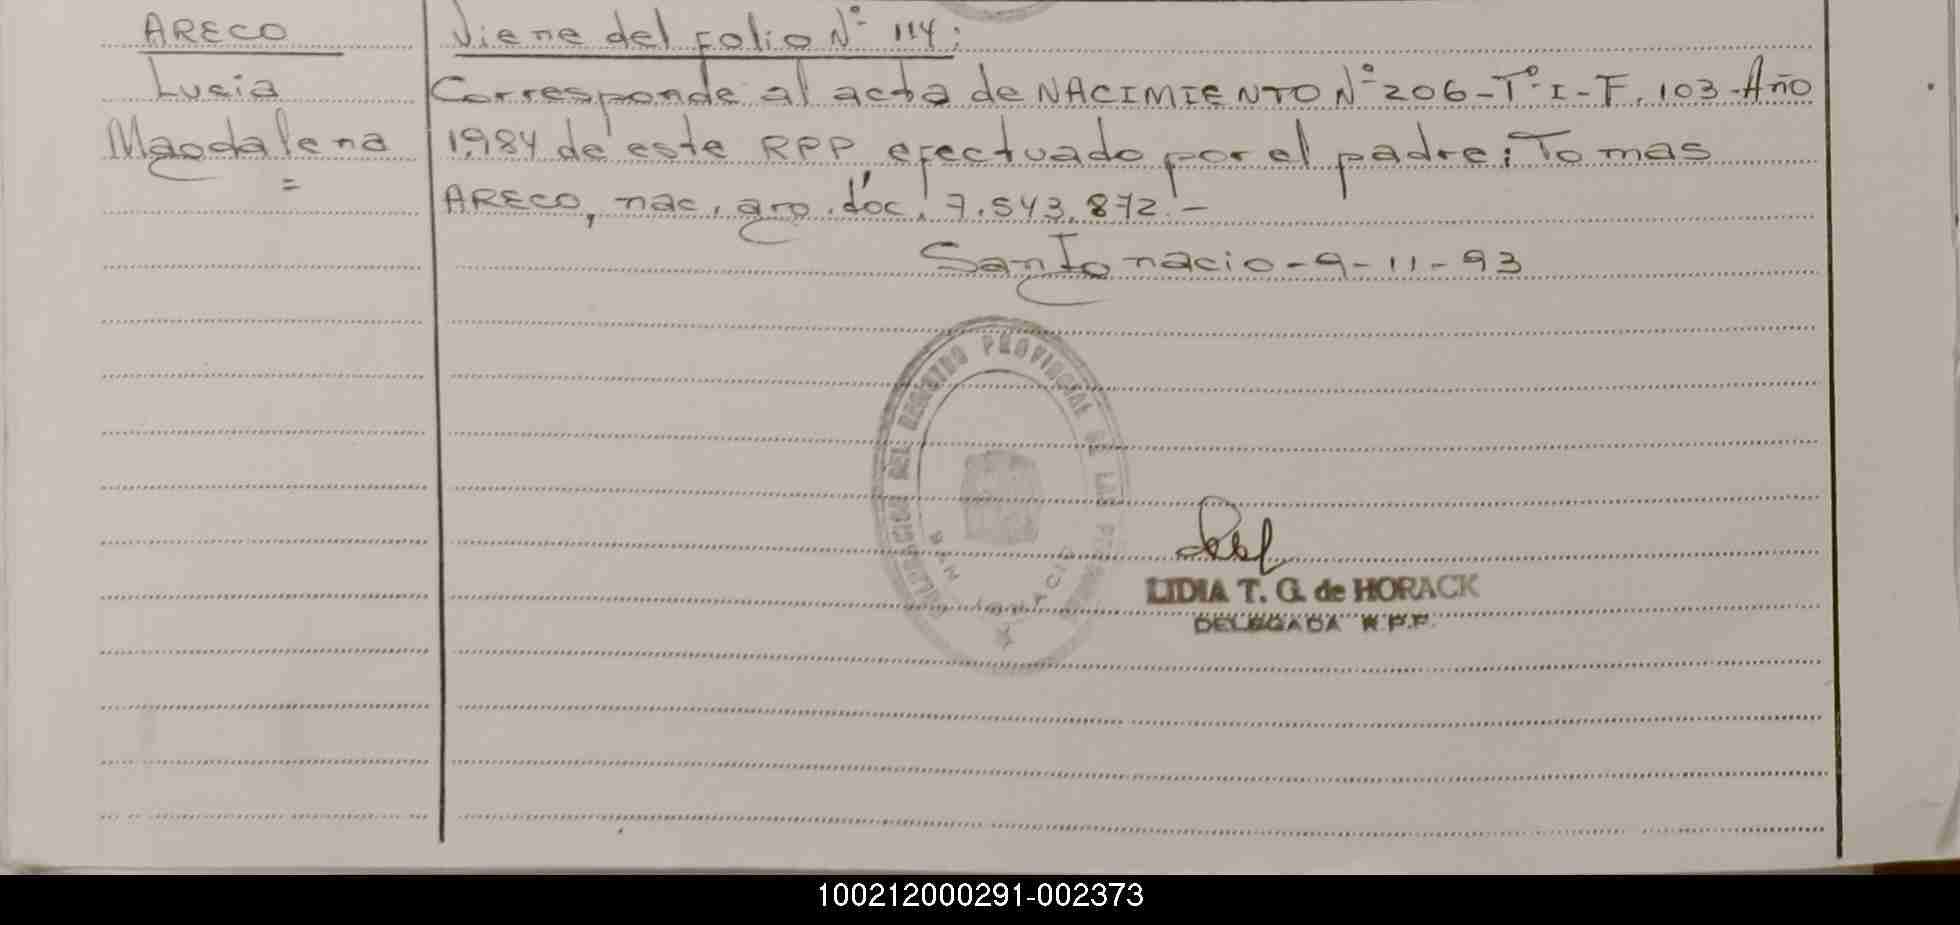 ARECO
Lucia
Magdalena
=
Viene del folio Nº 114:
Corresponde al acta de NACIMIENTO Nº 206-Tº I-F. 103-Año
1984 de este RPP efectuado por el padre: Tomas
ARECO, nac. arg. doc. 7.543.872.-
San Ignacio-9-11-93
DEL REGISTRO PROVINCIAL DE LAS PERSONAS
SAN IGNACIO
LIDIA T. G. de HORACK
DELEGADA R.P.P.
100212000291-002373